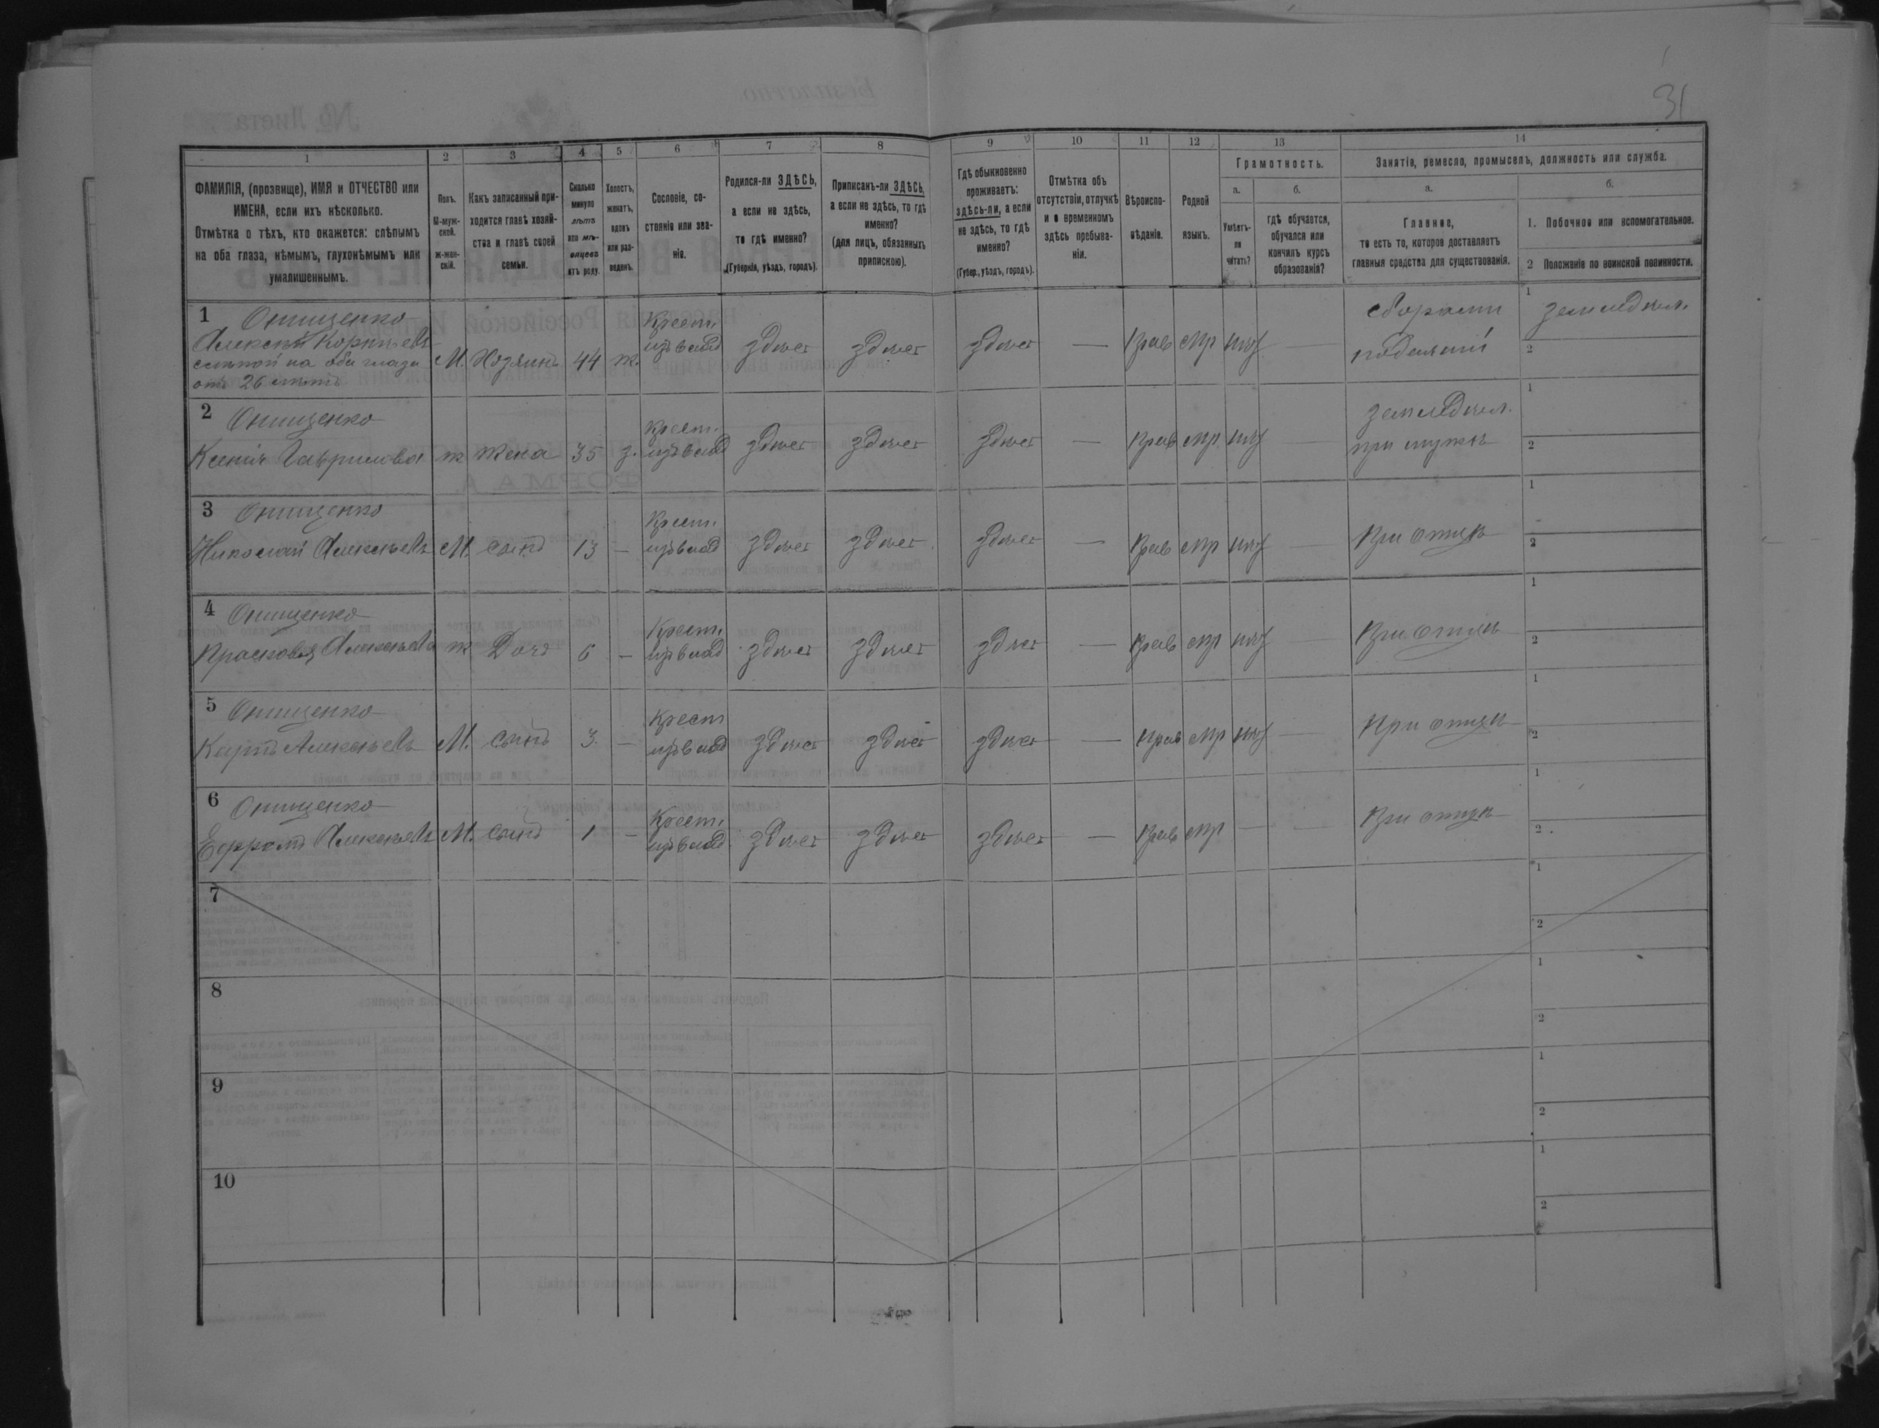 31
1 2 3 4 5 6 7 8 9 10 11 12 13 14
ФАМИЛІЯ, (прозвище), ИМЯ и ОТЧЕСТВО или ИМЕНА, если ихъ нѣсколько.
Отмѣтка о тѣхъ, кто окажется: слѣпымъ на оба глаза, нѣмымъ, глухонѣмымъ или умалишеннымъ.
Полъ.
М-мужской.
Ж-женскій.
Какъ записанный приходится главѣ хозяйства и главѣ своей семьи.
Сколько минуло лѣтъ или мѣсяцевъ отъ роду.
Холостъ, женатъ, вдовъ или разведенъ.
Сословіе, состояніе или званіе.
Родился-ли ЗДѢСЬ, а если не здѣсь, то гдѣ именно?
(Губернія, уѣздъ, городъ).
Приписанъ-ли ЗДѢСЬ, а если не здѣсь, то гдѣ именно?
(для лицъ, обязанныхъ припискою).
Гдѣ обыкновенно проживаетъ: здѣсь-ли, а если не здѣсь, то гдѣ именно?
(Губер., уѣздъ, городъ).
Отмѣтка объ отсутствіи, отлучкѣ и о временномъ здѣсь пребываніи.
Вѣроисповѣданіе.
Родной языкъ.
Грамотность.
а. Умѣетъ-ли читать?
б. гдѣ обучается, обучался или кончилъ курсъ образованія?
Занятіе, ремесло, промыселъ, должность или служба.
а. Главное,
то есть то, которое доставляетъ главныя средства для существованія.
б.
1. Побочное или вспомогательное.
2 Положеніе по воинской повинности.
1 Онищенко
Алексѣй Корнѣевъ
слѣпой на оба глаза
отъ 26 лѣтъ
М. Хозяинъ 44 ж. Крест. изъ влад здѣсь здѣсь здѣсь — Прав мр нѣт — сборомъ 1 земледѣл. 2
2 Онищенко
Ксенія Гаврилова ж жена 35 з. Крест. изъ влад здѣсь здѣсь здѣсь — Прав мр нѣт — земледѣл. при мужѣ 1 2
3 Онищенко
Николай Алексѣевъ М. сынъ 13 — Крест. изъ влад здѣсь здѣсь здѣсь — Прав мр нѣт — При отцѣ 1 2
4 Онищенко
Прасковья Алексѣева ж Дочь 6 — Крест. изъ влад здѣсь здѣсь здѣсь — Прав мр нѣт — При отцѣ 1 2
5 Онищенко
Карпъ Алексѣевъ М. сынъ 3 — Крест изъ влад здѣсь здѣсь здѣсь — Прав мр нѣт — При отцѣ 1 2
6 Онищенко
Ефремъ Алексѣевъ М. сынъ 1 — Крест. изъ влад здѣсь здѣсь здѣсь — Прав мр — — При отцѣ 1 2
7 1 2
8 1 2
9 1 2
10 1 2